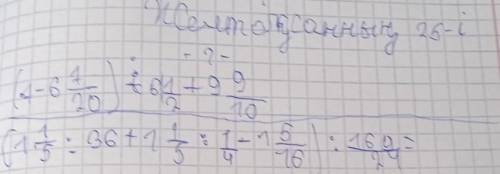 Желтоқсанның 26-і
- ? -
(7 - 6 1/20) : 6 1/2 + 9 9/10
(1 1/5 : 36 + 1 1/5 : 1/4 - 1 5/16) : 169/24 =